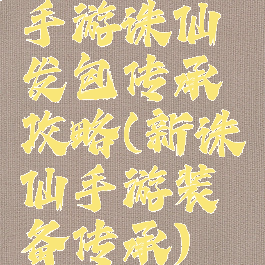 手游诛仙
炭包传承
攻略(新诛
仙手游装
备传承)